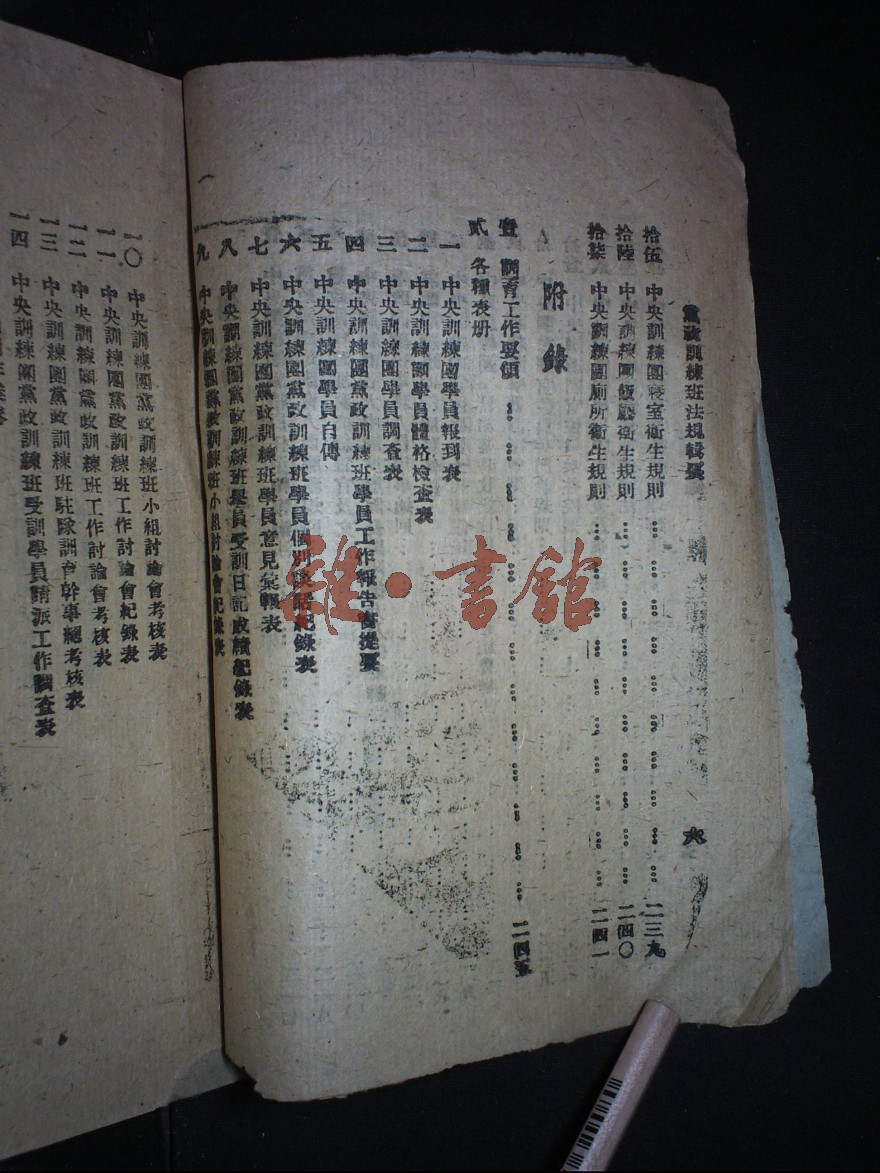 黨政訓練班法規輯要
六
拾伍 中央訓練團寢室衛生規則 二三九
拾陸 中央訓練團飯廳衛生規則 二四〇
拾柒 中央訓練團廁所衛生規則 二四一
附錄
壹 訓育工作要領 二四五
貳 各種表册
一 中央訓練團學員報到表
二 中央訓練團學員體格檢查表
三 中央訓練團學員調查表
四 中央訓練團黨政訓練班學員工作報告書提要
五 中央訓練團學員自傳
六 中央訓練團黨政訓練班學員個別談話紀錄表
七 中央訓練團黨政訓練班學員意見彙報表
八 中央訓練團黨政訓練班學員受訓日記成績紀錄表
九 中央訓練團黨政訓練班小組討論會紀錄表
一〇 中央訓練團黨政訓練班小組討論會考核表
一一 中央訓練團黨政訓練班工作討論會紀錄表
一二 中央訓練團黨政訓練班工作討論會考核表
一三 中央訓練團黨政訓練班駐隊訓育幹事總考核表
一四 中央訓練團黨政訓練班受訓學員請派工作調查表
雜·書館